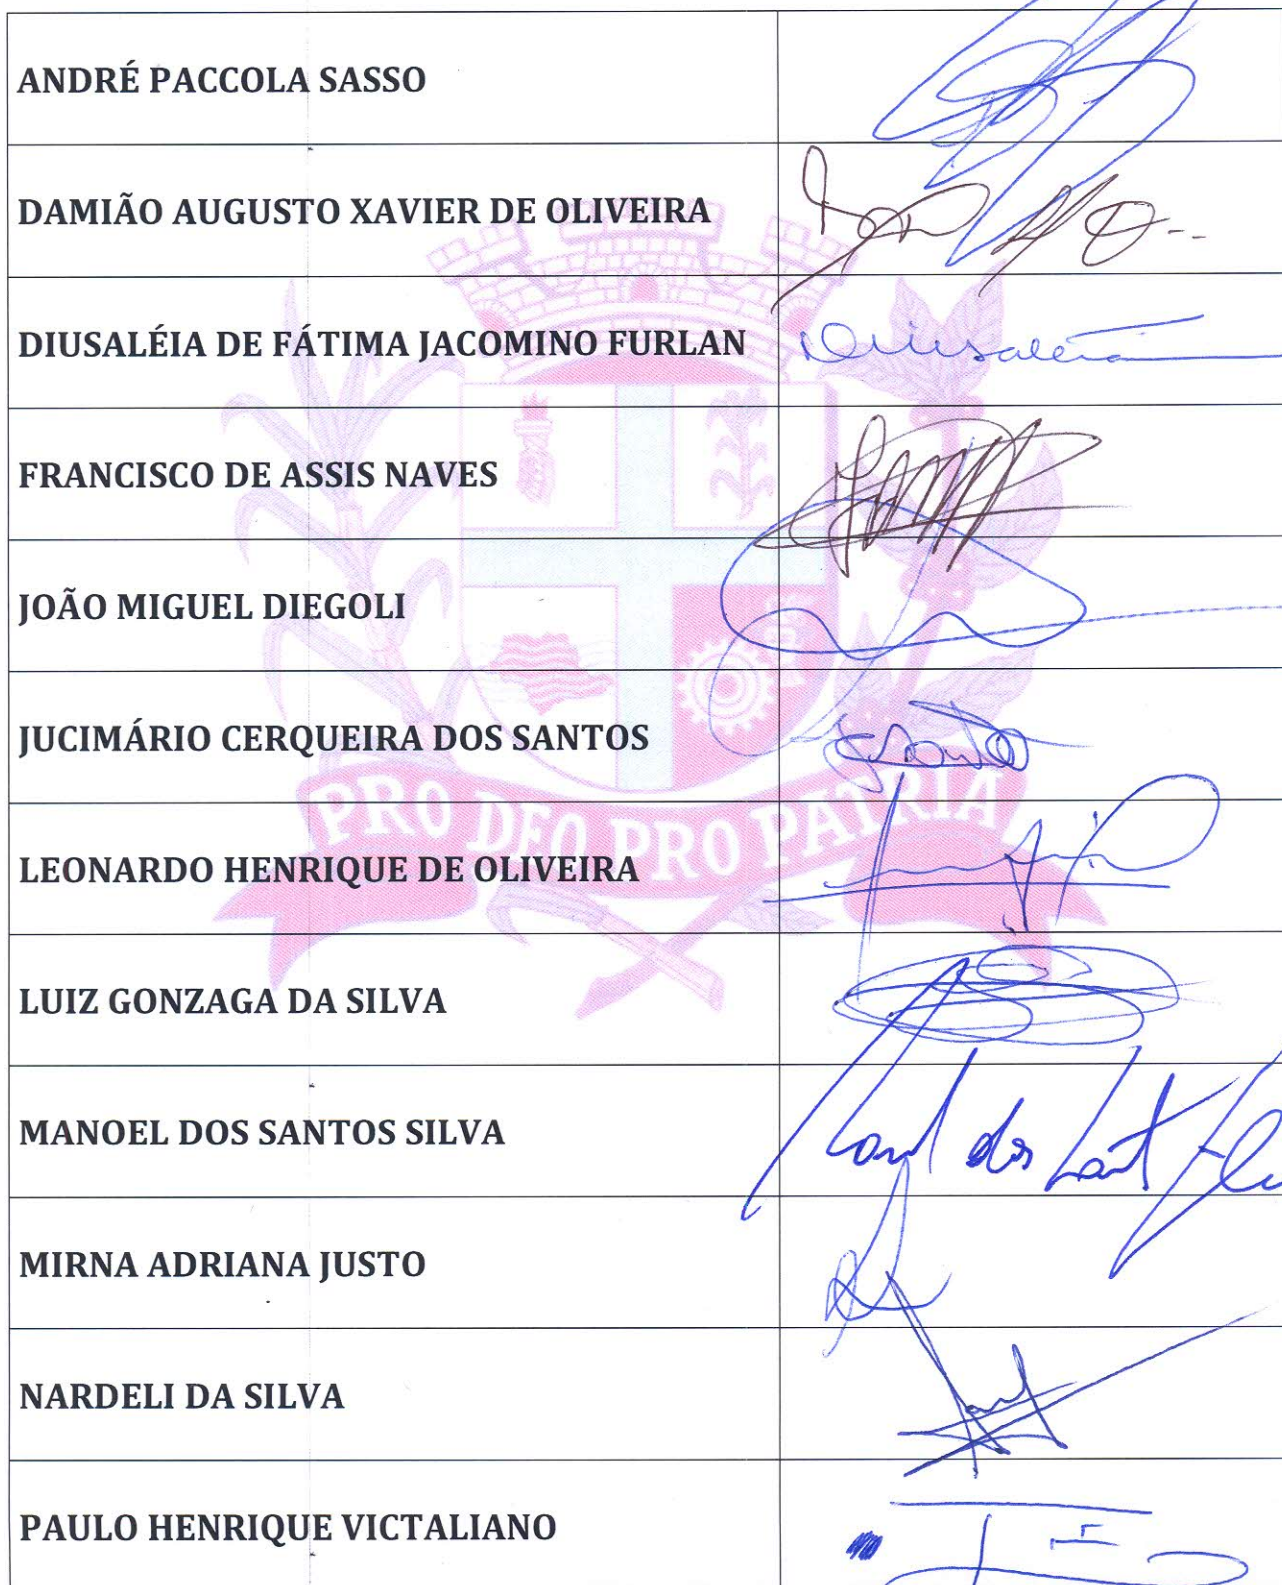 ANDRÉ PACCOLA SASSO
DAMIÃO AUGUSTO XAVIER DE OLIVEIRA
DIUSALÉIA DE FÁTIMA JACOMINO FURLAN Diusaléia
FRANCISCO DE ASSIS NAVES
JOÃO MIGUEL DIEGOLI
JUCIMÁRIO CERQUEIRA DOS SANTOS
PRO DEO PRO PATRIA
LEONARDO HENRIQUE DE OLIVEIRA
LUIZ GONZAGA DA SILVA
MANOEL DOS SANTOS SILVA dos
MIRNA ADRIANA JUSTO
NARDELI DA SILVA
PAULO HENRIQUE VICTALIANO